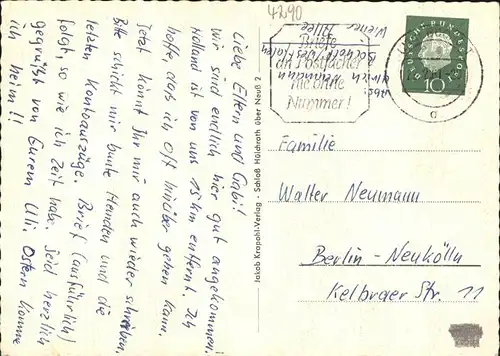 4290
Briefe
an Postfächer
nie ohne
Nummer!
DEUTSCHE BUNDESPOST
10
a
Wiener Allee
Bocholt/Westfalen
Ulrich Neumann
Abs.
Liebe Eltern und Gabi!
Wir sind endlich hier gut angekommen.
Holland ist von uns 15 km entfernt. Ich
hoffe, daß ich oft hinüber gehen kann.
Jetzt könnt Ihr mir auch wieder schreiben.
Bitte schickt mir bunte Hemden und die
letzten Kontoauszüge. Brief (ausführlich)
folgt, so wie ich Zeit hab. Seid herzlich
gegrüßt von Eurem Uli. Ostern komme
ich heim!!
Jakob Krapohl-Verlag - Schloß Hülchrath über Neuß 2
Familie
Walter Neumann
Berlin - Neukölln
Kelbraer Str. 11